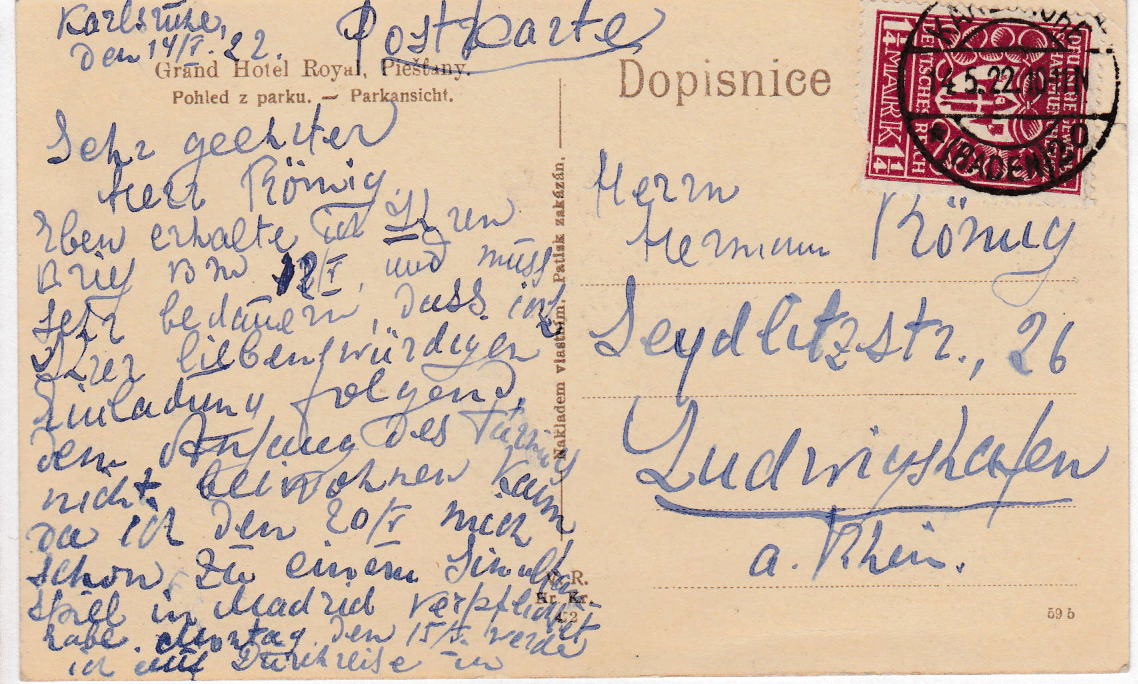 Karlsruhe,
den 14/V. 22.
Postkarte
Grand Hotel Royal, Piešťany.
Pohled z parku. — Parkansicht.
Sehr geehrter
Herr Römig.
Eben erhalte ich Ihren
Brief vom 12/V, und muss
sehr bedauern, dass ich
Ihrer liebenswürdigen
Einladung folgend,
dem Anfang des Turniers
nicht beiwohnen kann
da ich den 20/V mich
schon zu einem Simultan-
spiel in Madrid verpflichtet
habe. Montag den 15/V. werde
ich auf Durchreise in
Nakladem vlastním. Patisk zakázán.
Gr. Kr.
Dopisnice
DEUTSCHES REICH
1¼ MARK 1¼
14.5.22. 10-11 N
(BADEN)
Herrn
Hermann Römig
Seydlitzstr., 26
Ludwigshafen
a. Rhein.
59 5